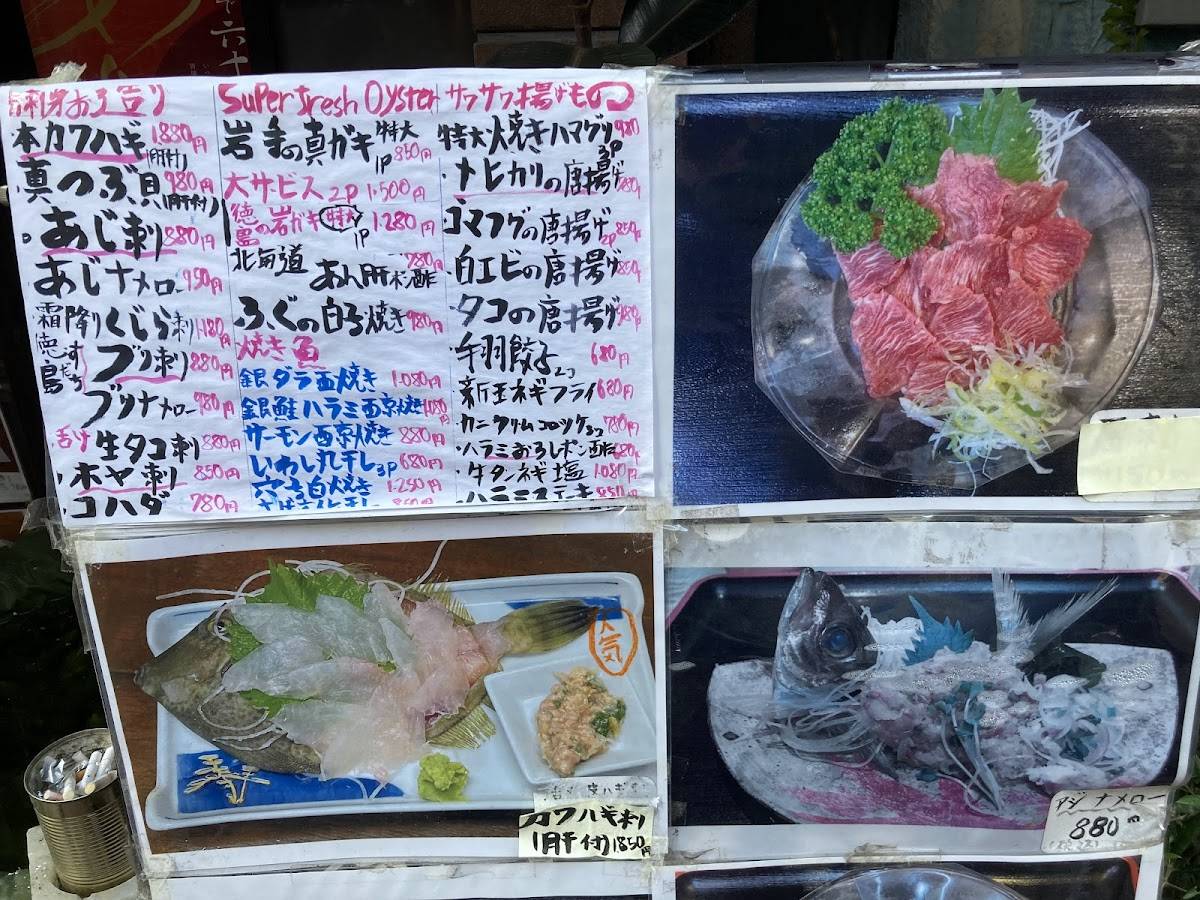 で六十
本カワハギ 1.880円
(肝付)
真つぶ貝 980円
(肝付)
あじ刺 880円
あじナメロー 950円
霜降りくじら刺 1.180円
徳島すだちブリ刺 880円
ブリナメロー 980円
活け生タコ刺 880円
ホヤ刺 850円
コハダ 780円
Super fresh Oyster
岩手の真ガキ 特大 1P 850円
大サービス 2P 1.500円
徳島の岩ガキ 特大 1P 1.280円
北海道 あん肝ポン酢 780円
ふぐの白子焼き 980円
焼き魚
銀ダラ西焼き 1.080円
銀鮭ハラミ西京焼き 1.080円
サーモン西京焼き 880円
いわし丸干し 3P 680円
穴子白焼き 1.250円
サクサク揚げもの
特大焼きハマグリ 3P 980
メヒカリの唐揚げ 780円
ゴマフグの唐揚げ 2P 850円
白エビの唐揚げ 850円
タコの唐揚げ 980円
手羽餃子 2コ 680円
新玉ネギフライ 680円
カニクリームコロッケ 3コ 780円
ハラミおろしポン酢 680円
牛タンネギ塩 1.080円
ハラミステーキ
人気
カワハギ刺
(肝付) 1850円
アジナメロー
880円